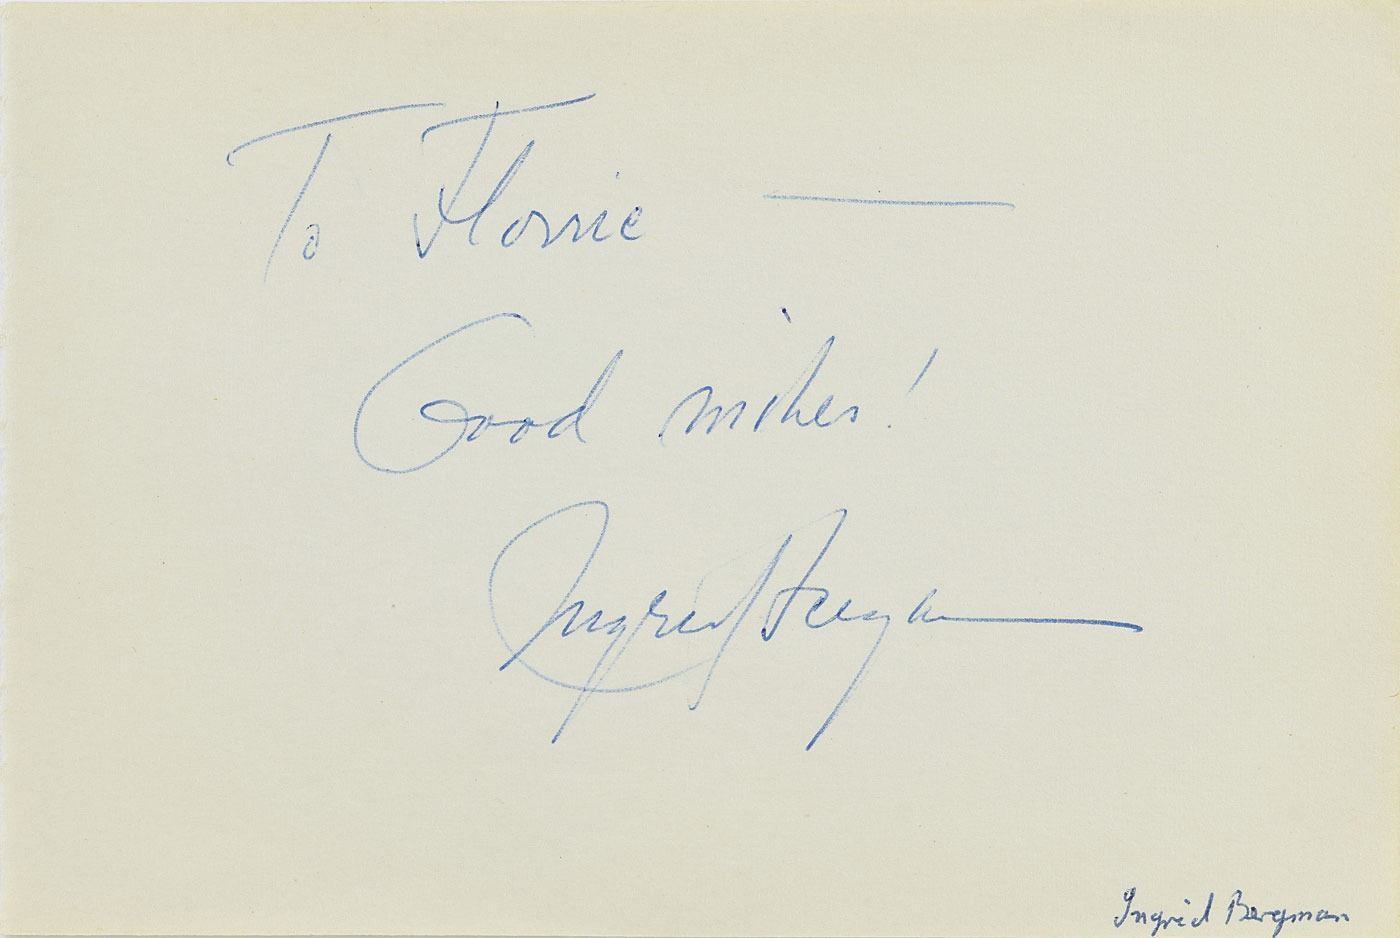 To Florrie —
Good wishes!
Ingrid Bergman
Ingrid Bergman